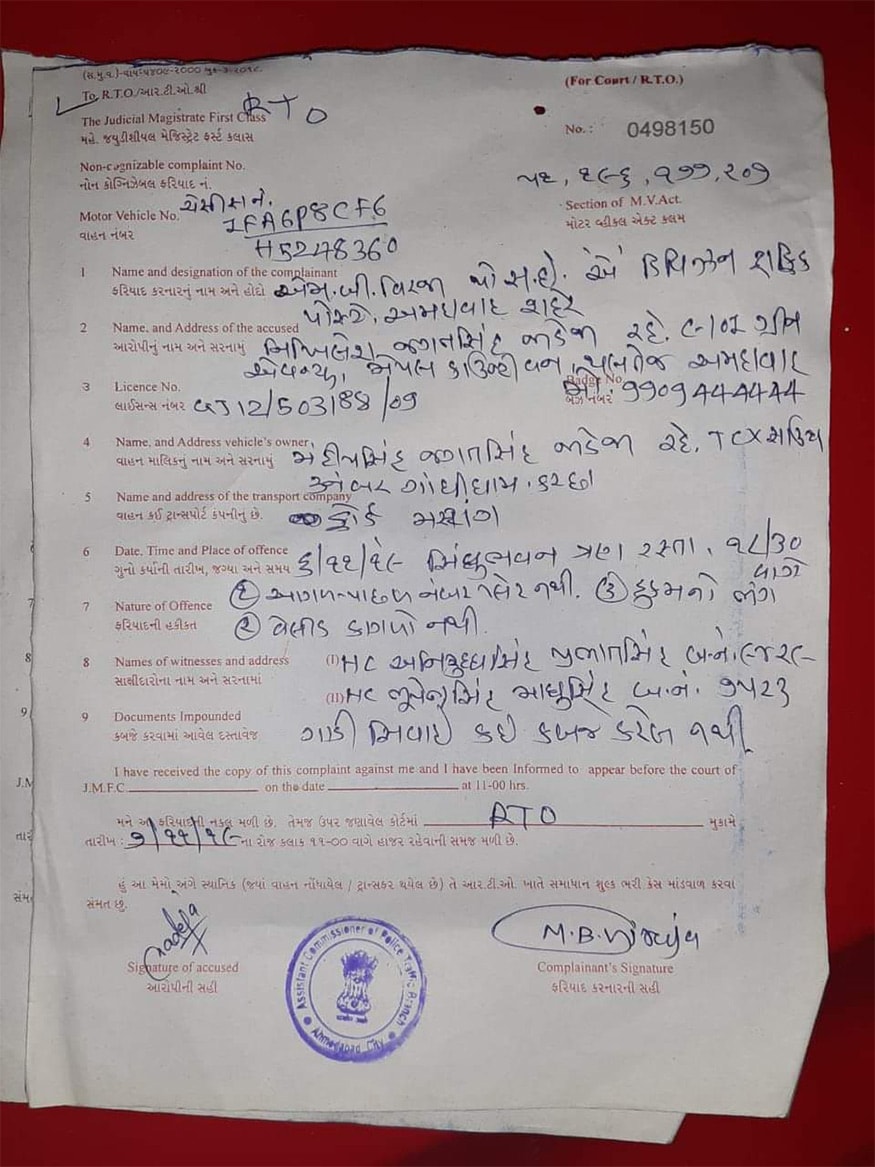 (સ.મુ.વ.)-વાય-૫૪૦૯-૨000
To, R.T.O./આર.ટી.ઓ.શ્રી
(For Court / R.T.O.)
The Judicial Magistrate First Class RTO
મહે. જયુડીશીયલ મેજિસ્ટ્રેટ ફર્સ્ટ કલાસ
No.: 0498150
Non-cognizable complaint No.
નોન કોગ્નિઝેબલ ફરિયાદ નં.
૫૨, ૧૯૬, ૧૭૭, ૨૦૭
Section of M.V.Act.
મોટર વ્હીકલ એક્ટ કલમ
Motor Vehicle No. ચેસીસ નં.
વાહન નંબર 1FA6P8CF6
H5248360
1 Name and designation of the complainant
ફરિયાદ કરનારનું નામ અને હોદો એમ.બી. વિરજા પો.સ.ઈ. એ ડિવિઝન ટ્રાફિક
પો.સ્ટે. અમદાવાદ શહેર
2 Name, and Address of the accused
આરોપીનું નામ અને સરનામું જગતસિંહ જાડેજા રહે. ગ્રીન
એવન્યુ, મેપલ કાઉન્ટીવન, થલતેજ અમદાવાદ
Badge No.
3 Licence No.
લાઈસન્સ નંબર GJ12/503188/09
બેઝ નંબર: મો. 9909444444
4 Name, and Address vehicle's owner
વાહન માલિકનું નામ અને સરનામું જગતસિંહ જાડેજા રહે. TCX
ગાંધીધામ. કચ્છ
5 Name and address of the transport company
વાહન કઈ ટ્રાન્સપોર્ટ કંપનીનું છે. ફોર્ડ મસ્ટાંગ
6 Date, Time and Place of offence
ગુનો કર્યાની તારીખ, જગ્યા અને સમય ૬/૧૧/૧૯ સિંધુભવન ત્રણ રસ્તા. ૧૮/30
વાગે
7 Nature of Offence ① આગળ-પાછળ નંબર પ્લેટ નથી. ③ હુકમનો ભંગ
ફરિયાદની હકીકત ② વેલીડ કાગળો નથી.
8 Names of witnesses and address
સાક્ષીદારોના નામ અને સરનામાં
(I) HC અનિરુદ્ધસિંહ પ્રભાતસિંહ બ.નં. ૯૪૨૯
(II) HC ભુપેન્દ્રસિંહ માધુસિંહ બ.નં. ૭૫૨૩
9 Documents Impounded
કબજે કરવામાં આવેલ દસ્તાવેજ ગાડી સિવાય કંઈ કબજે કરેલ નથી
I have received the copy of this complaint against me and I have been Informed to appear before the court of
J.M.F.C. on the date at 11-00 hrs.
મને આ ફરિયાદની નકલ મળી છે. તેમજ ઉપર જણાવેલ કોર્ટમાં RTO મુકામે
તારીખ : ૭/૧૧/૧૯ ના રોજ કલાક ૧૧-૦૦ વાગે હાજર રહેવાની સમજ મળી છે.
હું આ મેમો અંગે સ્થાનિક (જ્યાં વાહન નોંધાયેલ / ટ્રાન્સફર થયેલ છે) તે આર.ટી.ઓ. ખાતે સમાધાન શુલ્ક ભરી કેસ માંડવાળ કરવા
સંમત છું.
M.B.Virajya
Signature of accused
આરોપીની સહી
Complainant's Signature
ફરિયાદ કરનારની સહી
Assistant Commissioner of Police Traffic Branch
Ahmedabad City